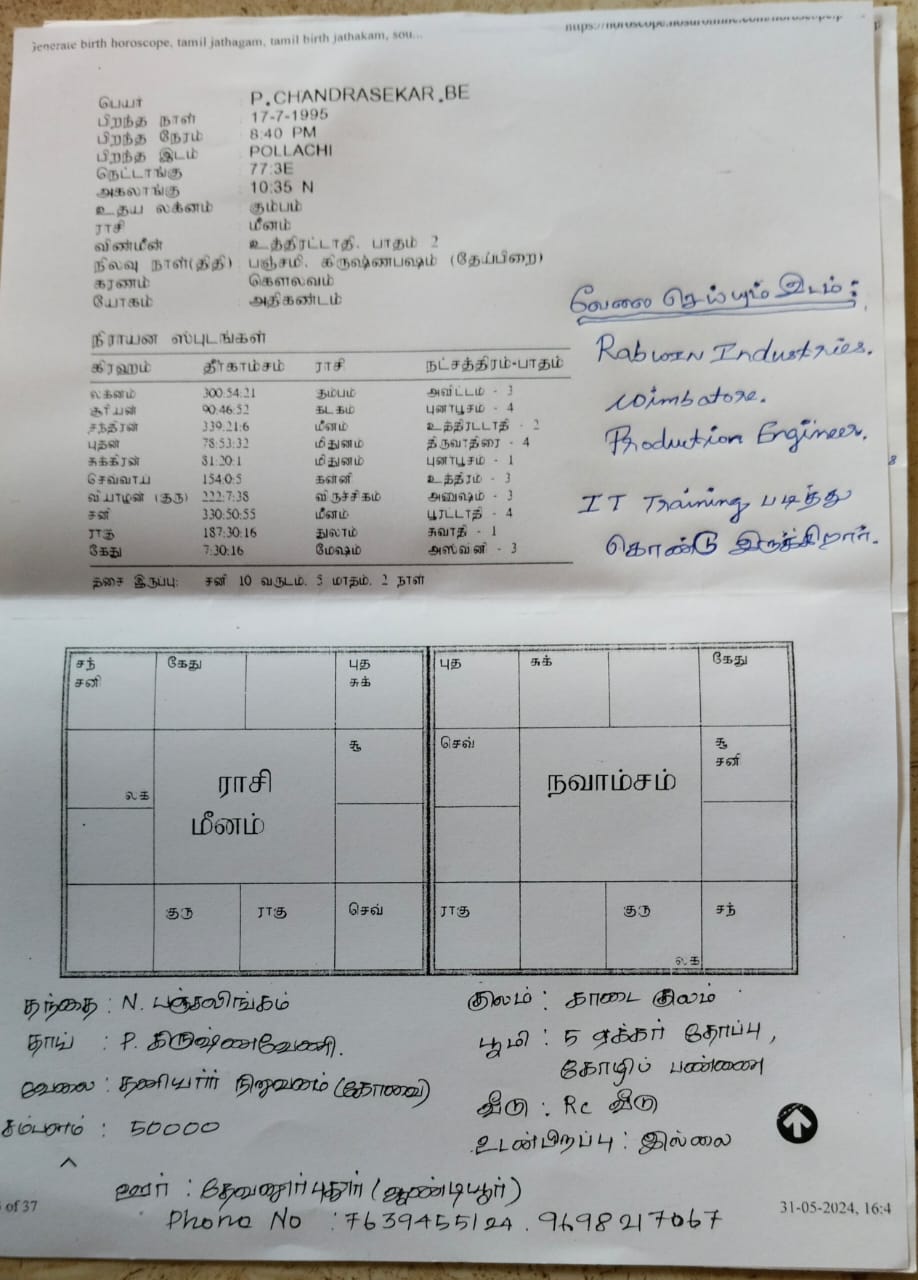 Generate birth horoscope, tamil jathagam, tamil birth jathakam, sou...
பெயர் P.CHANDRASEKAR.BE
பிறந்த நாள் 17-7-1995
பிறந்த நேரம் 8:40 PM
பிறந்த இடம் POLLACHI
நெட்டாங்கு 77:3E
அகலாங்கு 10:35 N
உதய லக்னம் கும்பம்
ராசி மீனம்
விண்மீன் உத்திரட்டாதி, பாதம் 2
நிலவு நாள்(திதி) பஞ்சமி, கிருஷ்ணபஷம் (தேய்பிறை)
கரணம் கௌலவம்
யோகம் அதிகண்டம்
நிராயன ஸ்புடங்கள்
கிரஹம் தீர்காம்சம் ராசி நட்சத்திரம்-பாதம்
லக்னம் 300:54:21 கும்பம் அவிட்டம் - 3
சூரியன் 90:46:52 கடகம் புனர்பூசம் - 4
சந்திரன் 339:21:6 மீனம் உத்திரட்டாதி - 2
புதன் 78:53:32 மிதுனம் திருவாதிரை - 4
சுக்கிரன் 81:20:1 மிதுனம் புனர்பூசம் - 1
செவ்வாய் 154:0:5 கன்னி உத்திரம் - 3
வியாழன் (குரு) 222:7:38 விருச்சிகம் அனுஷம் - 3
சனி 330:50:55 மீனம் பூரட்டாதி - 4
ராகு 187:30:16 துலாம் சுவாதி - 1
கேது 7:30:16 மேஷம் அஸ்வினி - 3
தசை இருப்பு: சனி 10 வருடம், 5 மாதம், 2 நாள்
வேலை செய்யும் இடம் :
Rabwin Industries.
Coimbatore.
Production Engineer.
IT Training படித்து
கொண்டு இருக்கிறார்.
சந் கேது புத
சனி சுக்
சூ
லக்
ராசி
மீனம்
குரு ராகு செவ்
புத சுக் கேது
செவ் சூ
சனி
நவாம்சம்
ராகு குரு சந்
லக்
தந்தை : N. பஞ்சலிங்கம்
தாய் : P. கிருஷ்ணவேணி.
வேலை : தனியார் நிறுவனம் (கோவை)
சம்பளம் : 50000
குலம் : காடை குலம்
பூமி : 5 ஏக்கர் தோப்பு,
கோழிப் பண்ணை
வீடு : Rc வீடு
உடன்பிறப்பு : இல்லை
ஊர் : தேவனூர்புதூர் (ஆண்டியூர்)
Phone No : 7639455124. 9698217067
of 37
31-05-2024, 16:4